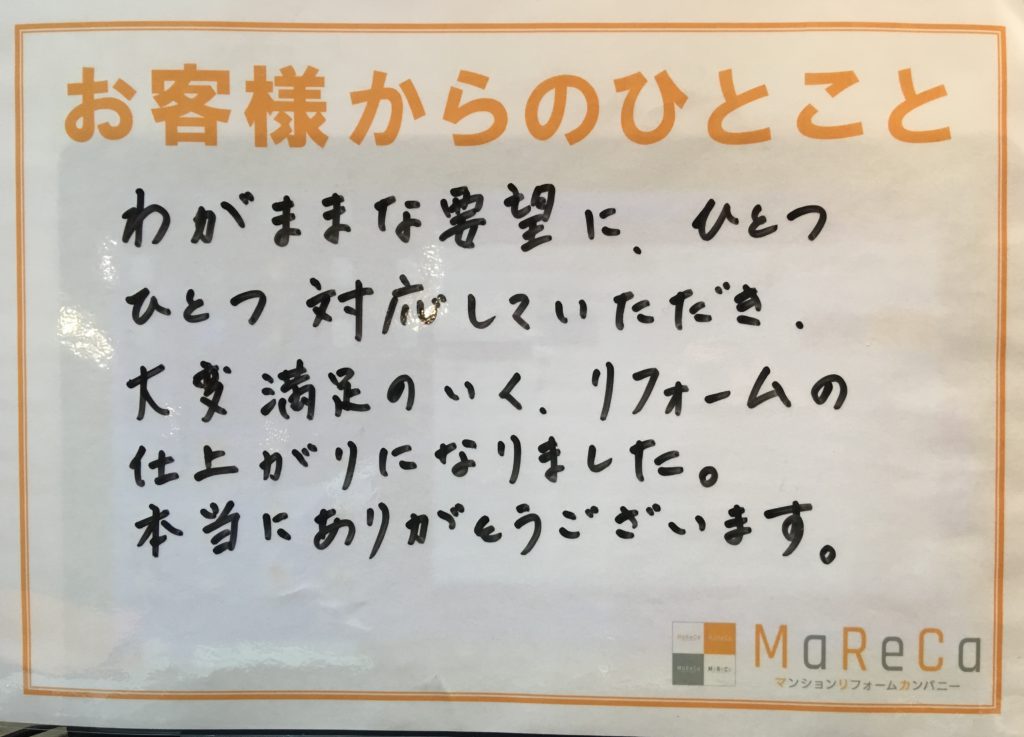 お客様からのひとこと
わがままな要望に、ひとつ
ひとつ対応していただき、
大変満足のいく、リフォームの
仕上がりになりました。
本当にありがとうございます。
MaReCa
マンションリフォームカンパニー